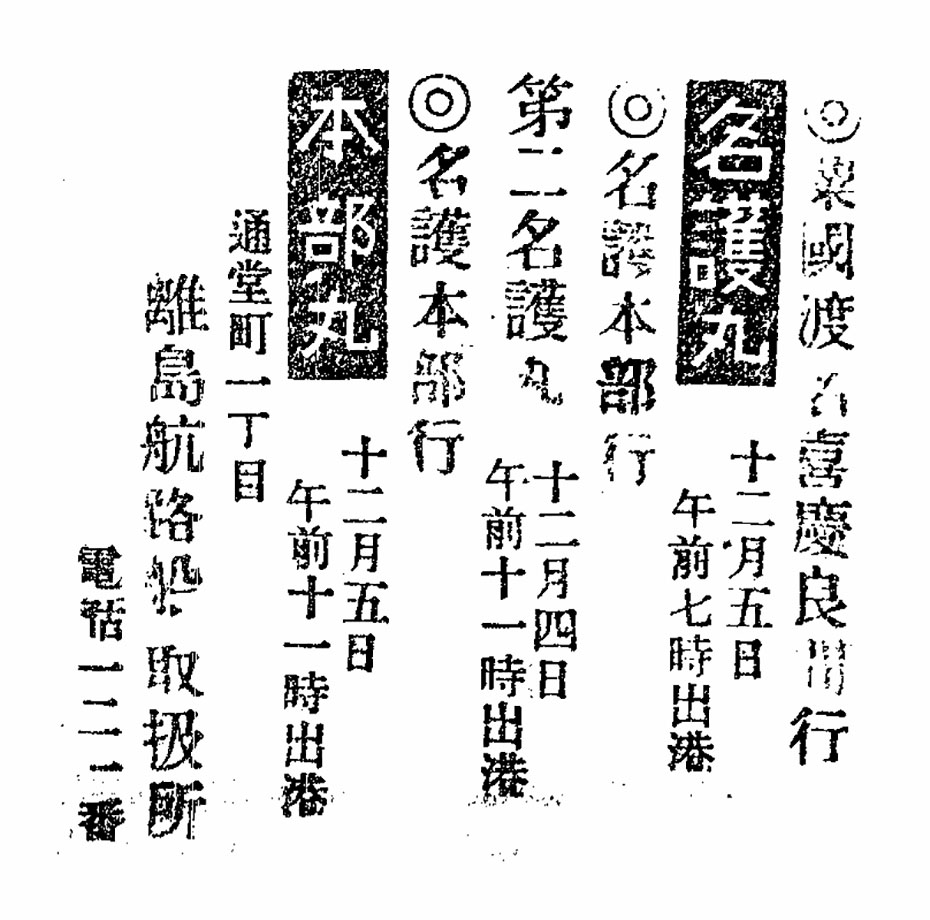 ◎粟國渡名喜慶良間行
名護丸
十二月五日
午前七時出港
◎名護本部行
第二名護丸
十二月四日
午前十一時出港
◎名護本部行
本部丸
十二月五日
午前十一時出港
通堂町一丁目
離島航路船取扱所
電話
番